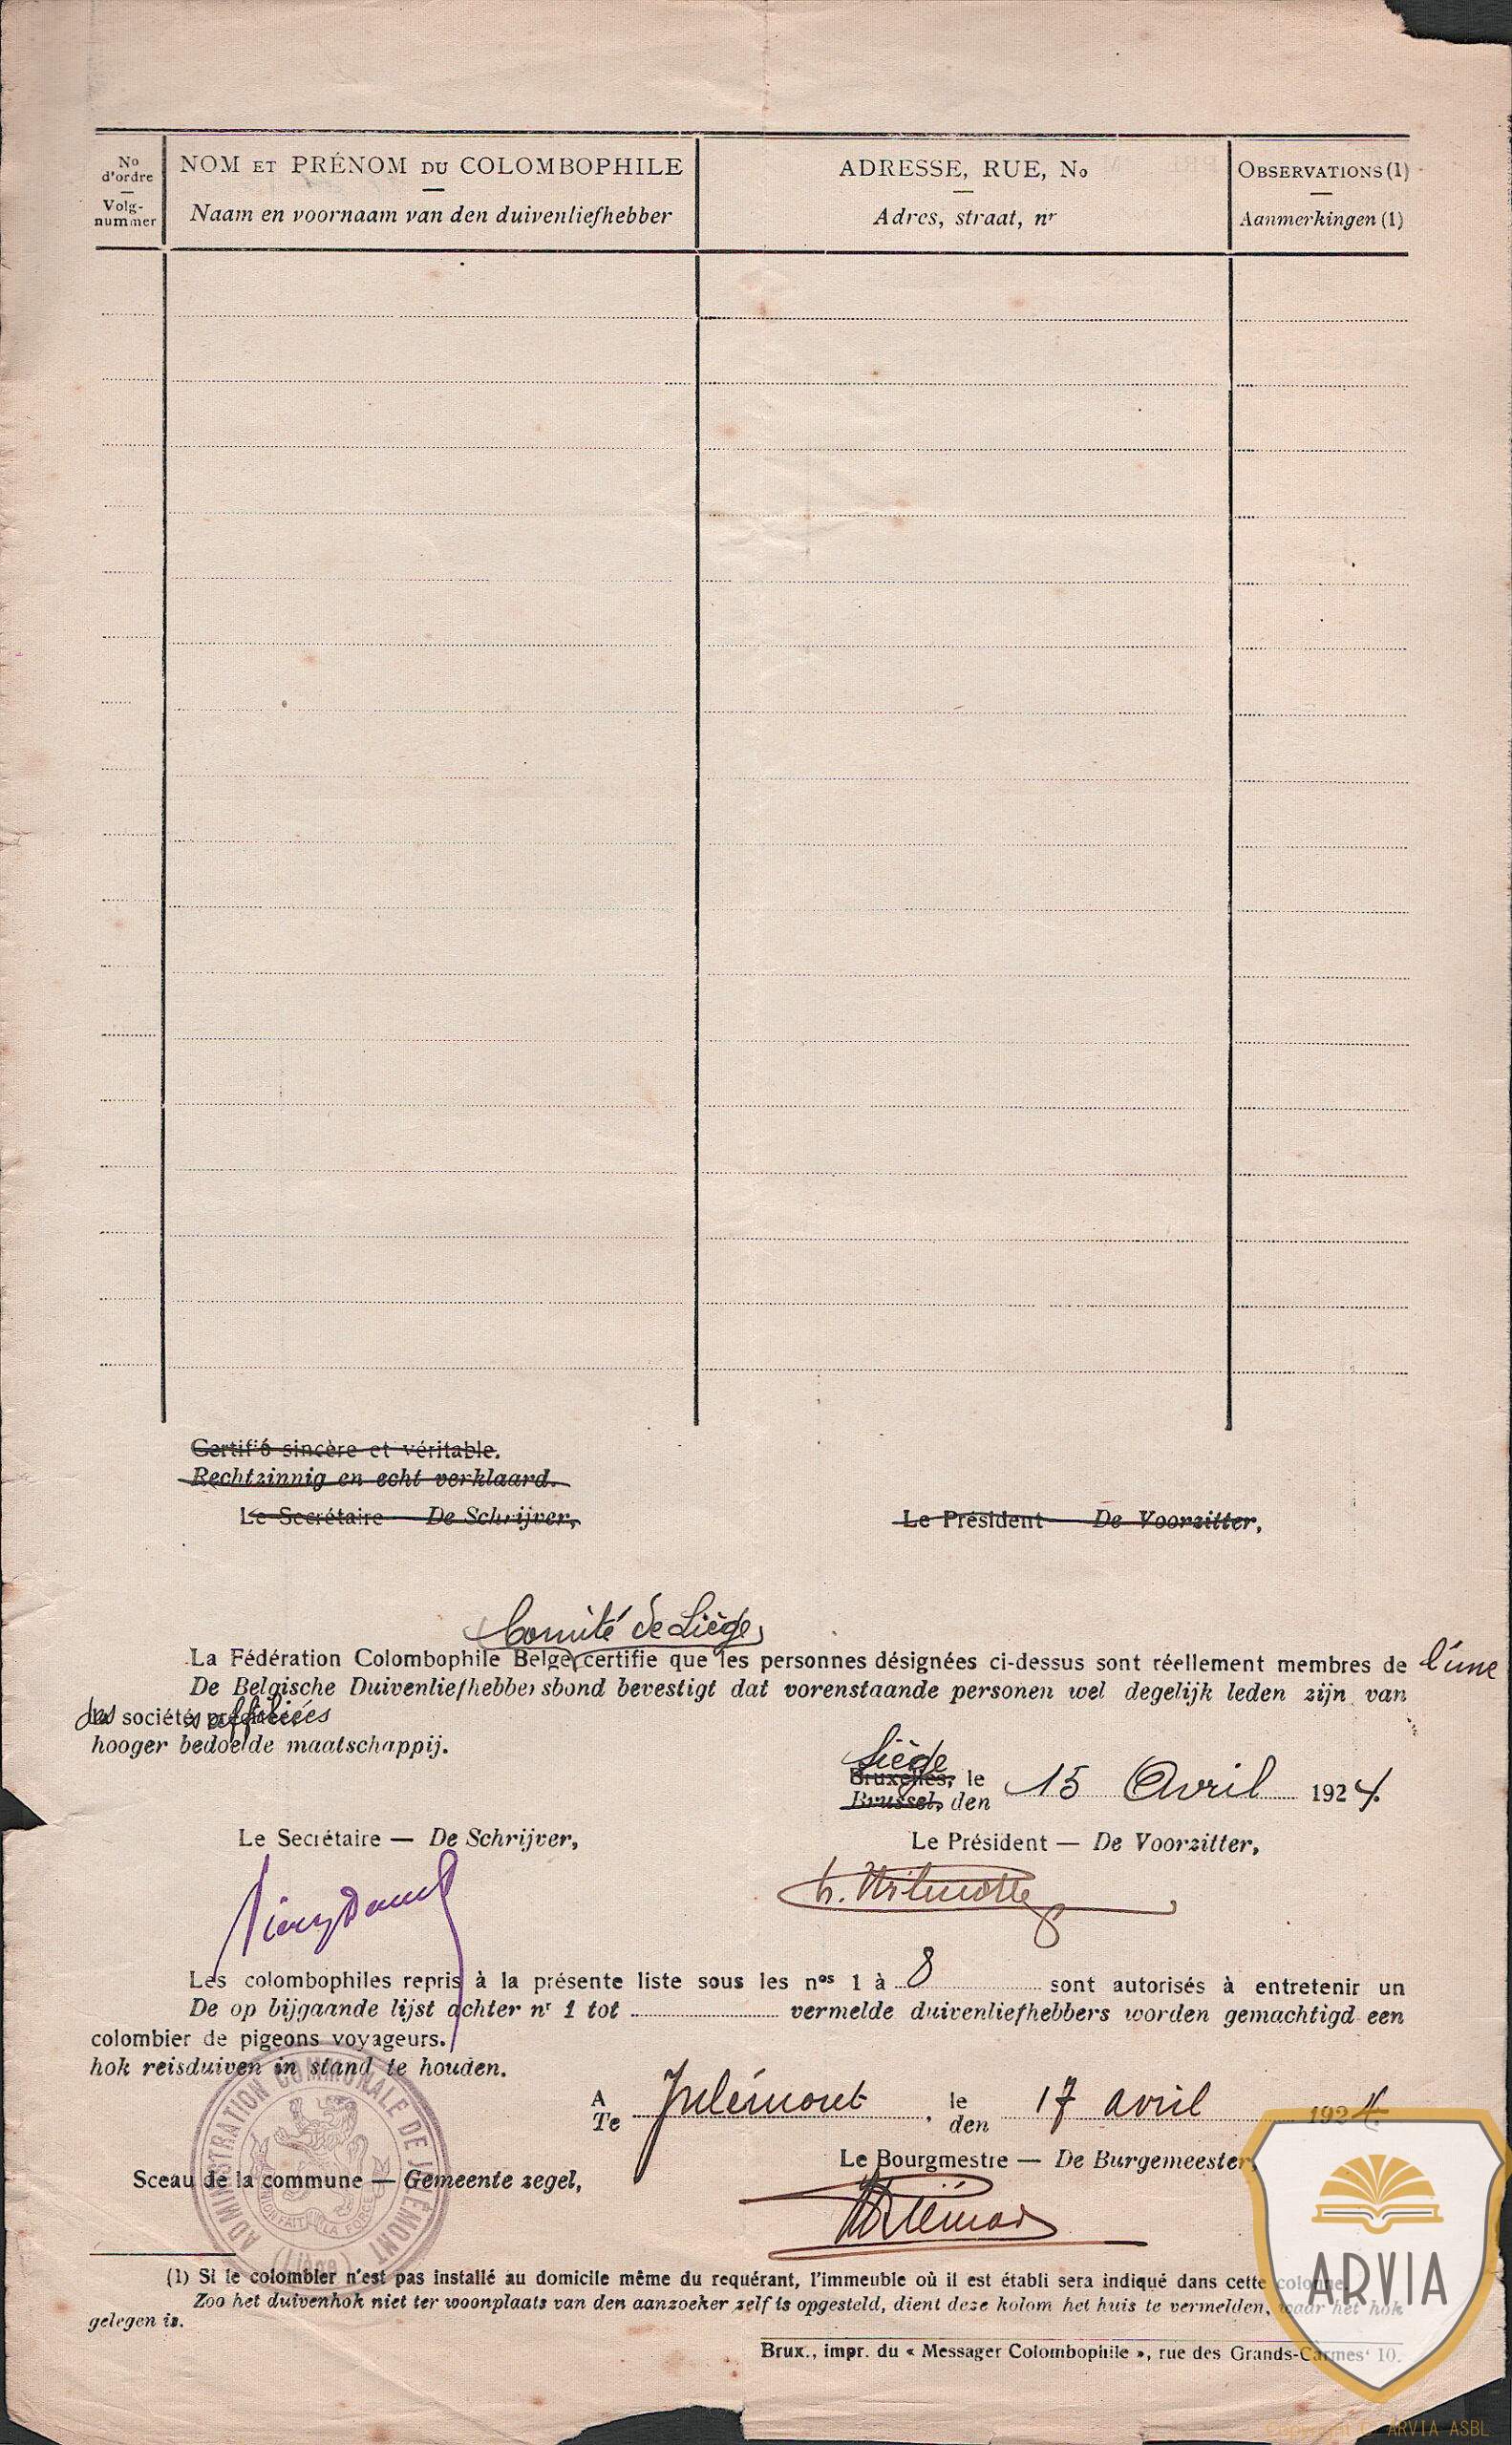 No d'ordre
Volg-nummer
NOM ET PRÉNOM DU COLOMBOPHILE
Naam en voornaam van den duivenliefhebber
ADRESSE, RUE, No
Adres, straat, nr
OBSERVATIONS (1)
Aanmerkingen (1)
Certifié sincère et véritable.
Rechtzinnig en echt verklaard.
Le Secrétaire — De Schrijver,
Le Président — De Voorzitter,
Comité de Liège,
La Fédération Colombophile Belge, certifie que les personnes désignées ci-dessus sont réellement membres de l'une
De Belgische Duivenliefhebbersbond bevestigt dat vorenstaande personen wel degelijk leden zijn van
des sociétés affiliées
hooger bedoelde maatschappij.
Liège
Bruxelles, le 15 Avril 1924.
Brussel, den
Le Secrétaire — De Schrijver,
Le Président — De Voorzitter,
Les colombophiles repris à la présente liste sous les nos 1 à 8 sont autorisés à entretenir un
De op bijgaande lijst achter nr 1 tot vermelde duivenliefhebbers worden gemachtigd een
colombier de pigeons voyageurs.
hok reisduiven in stand te houden.
A Julémont, le 17 avril 1924.
Te den
Le Bourgmestre — De Burgemeester,
Sceau de la commune — Gemeente zegel,
ADMINISTRATION COMMUNALE DE JULÉMONT
(Liège)
L'UNION FAIT LA FORCE
(1) Si le colombier n'est pas installé au domicile même du requérant, l'immeuble où il est établi sera indiqué dans cette colonne.
Zoo het duivenhok niet ter woonplaats van den aanzoeker zelf is opgesteld, dient deze kolom het huis te vermelden, waar het hok
gelegen is.
Brux., impr. du « Messager Colombophile », rue des Grands-Carmes' 10.
ARVIA
Copyright © ARVIA ASBL